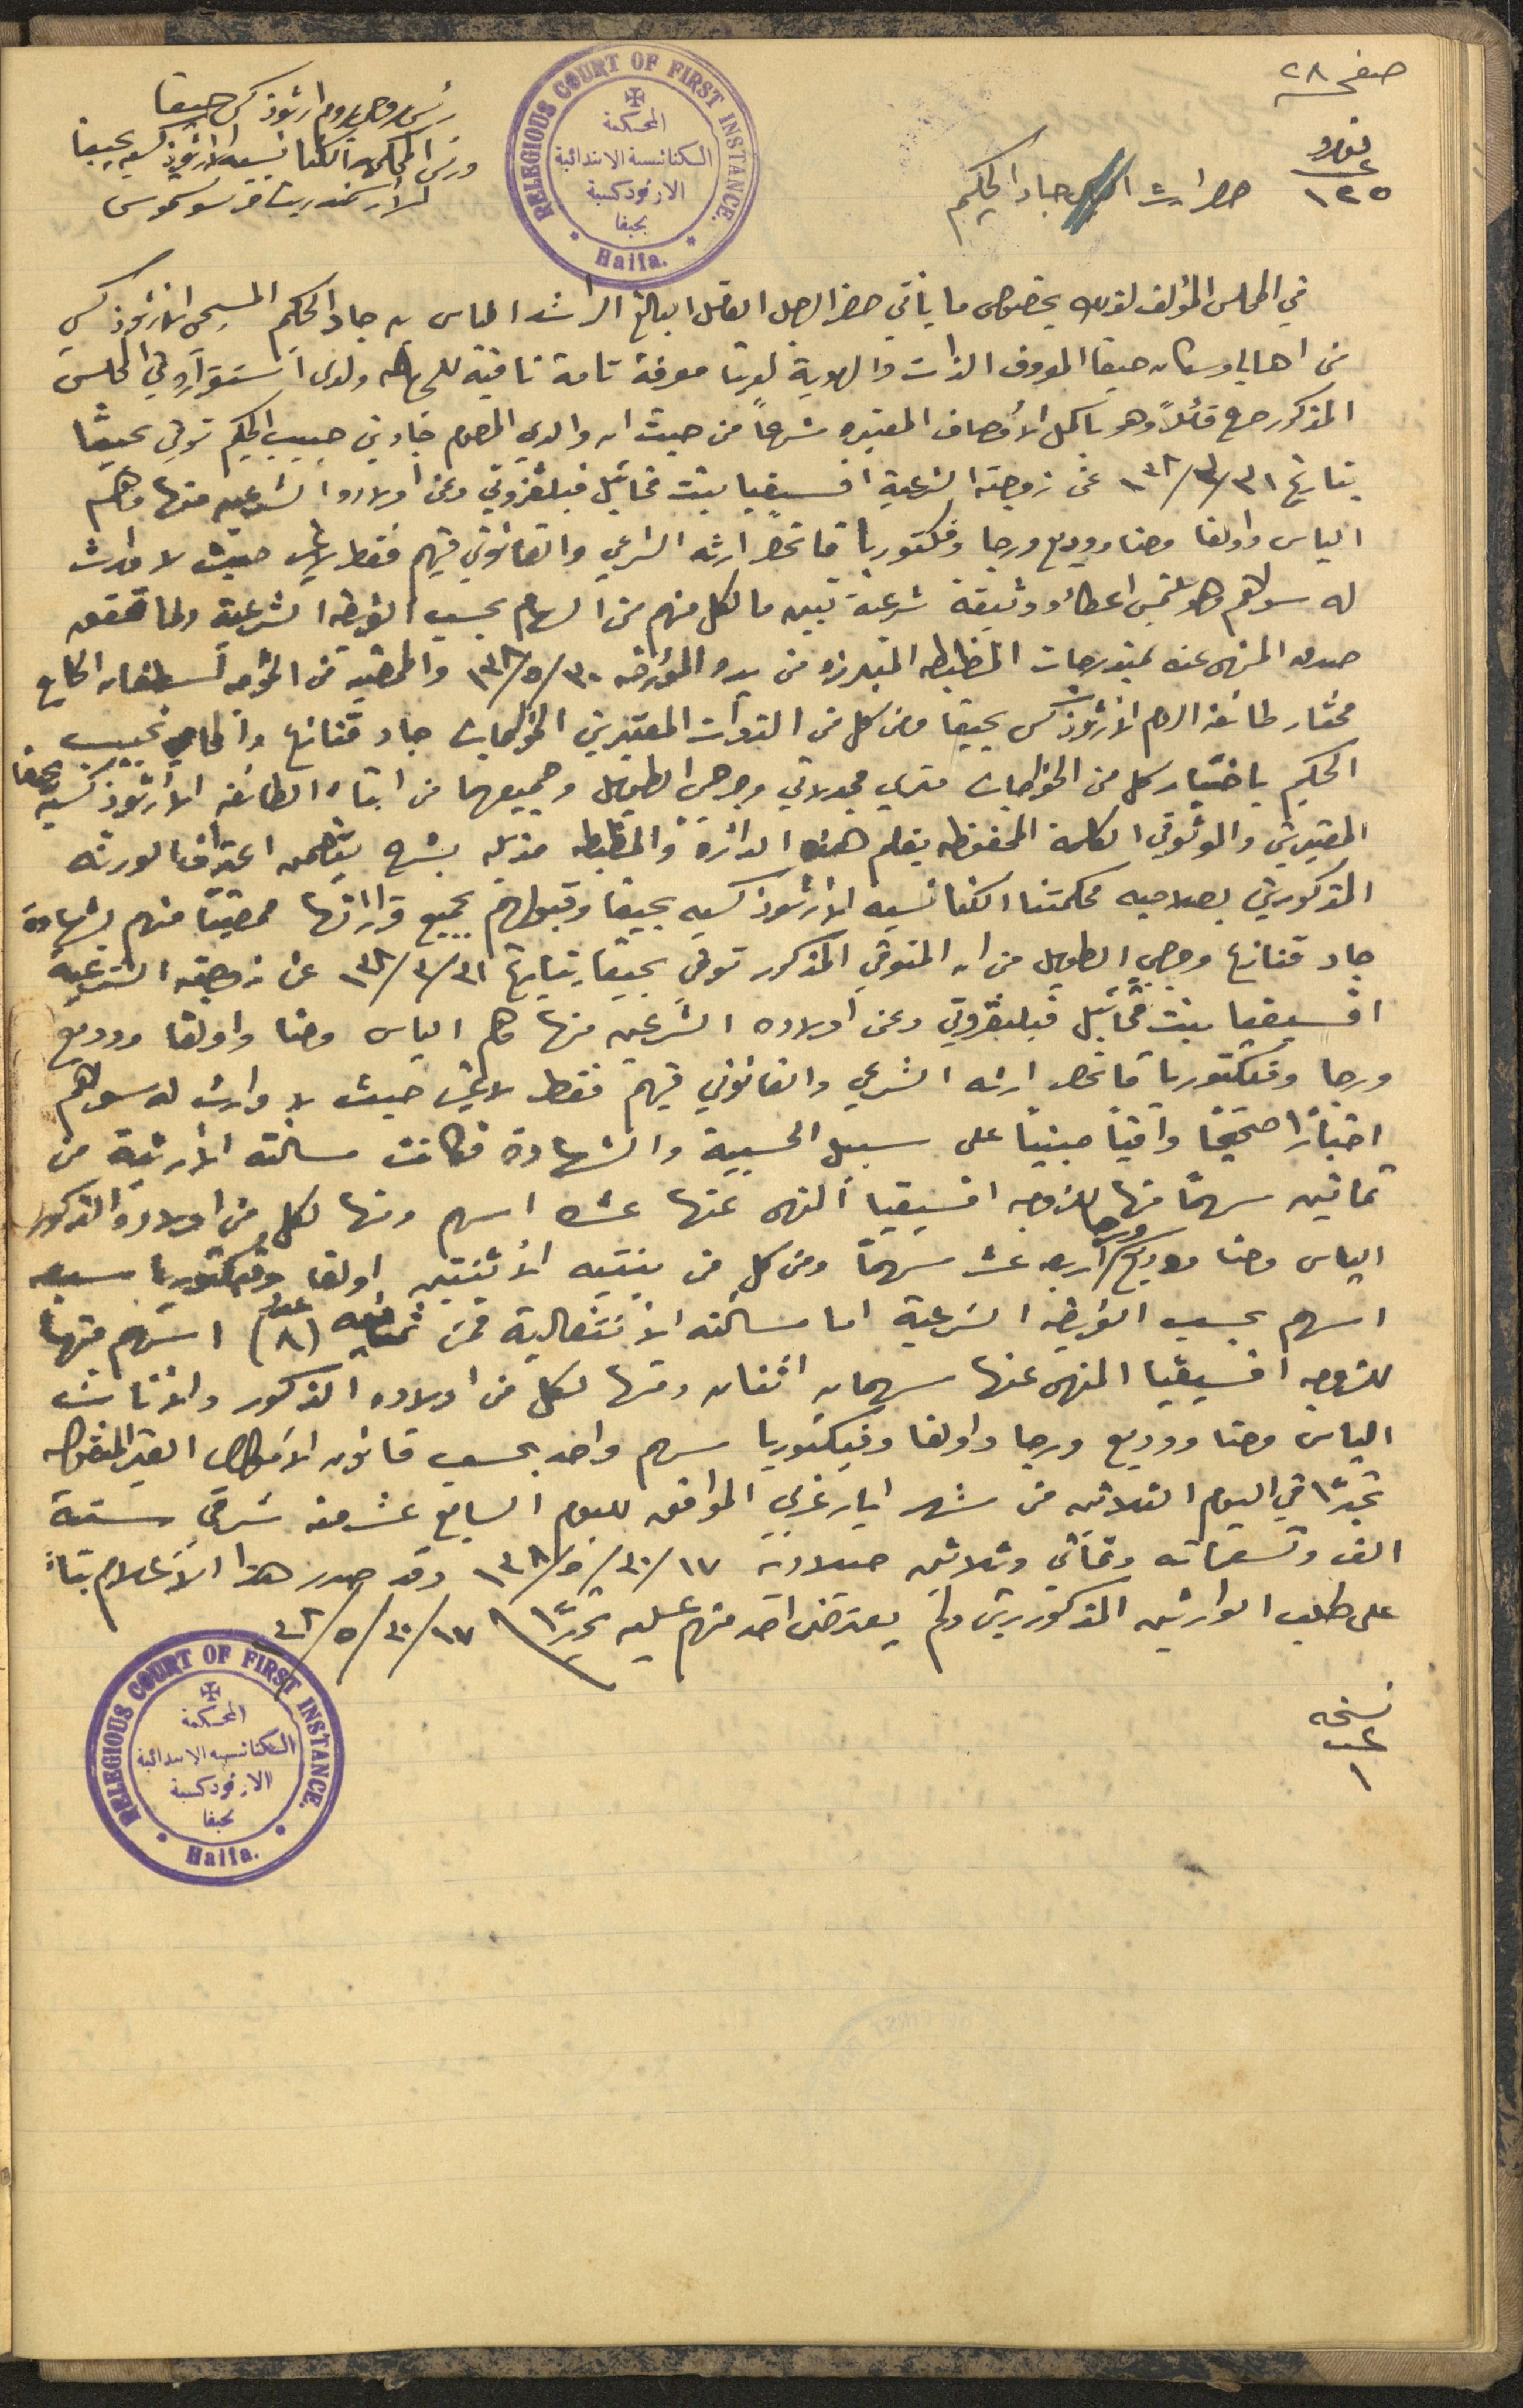 صفحه ٢٨
رئيس روحي روم ارثوذكس حيفا
ورئيس المحكمة الكنائسيه الارثوذكسيه بحيفا
الارشمندريت
RELEGIOUS COURT OF FIRST INSTANCE.
المحكمة
الكنائسية الابتدائية
الارثوذكسية
بحيفا
Haifa.
نمرو
٢
١٢٥
حصر ارث جاد الحكيم
في المجلس المؤلف لذلك بخصوص ما يأتي حضر الرجل العاقل البالغ الراشد الياس بن جاد الحكيم المسيحي الارثوذكسي
من اهالي وسكان حيفا المعروف الذات والهوية لدينا معرفة تامة نافية للجهاله ولدى استقراره في المجلس
المذكور صرح قائلاً وهو باكمل الأوصاف المعتبره شرعاً من حيث ان والدي المرحوم جاد بن حبيب الحكيم توفي بحيفا
بتاريخ ٣١/٣/٩٣٨ عن زوجته الشرعية افسيقيا بنت مخائيل فيليفزوتي وعن اولاده الشرعيين منها وهم
الياس واولغا وحنا ووديع ورجا وفكتوريا فانحصر ارثه الشرعي والقانوني فيهم فقط لا غير حيث لا وارث
له سواهم وهو يلتمس اعطاءه وثيقة شرعية تبين ما لكل منهم من السهام بحسب الفريضه الشرعية ولما تحقق
صدق المنهى عنه بمندرجات المظبطه المتبرزه من يده المؤرخه ٣٠/٥/٩٣٨ والممضيه من الخوجه اسطفان
مختار طائفة الروم الارثوذكس بحيفا ومن كل من الذوات المعتبرين الخواجات جاد قنازع والمحامي نجيب
الحكيم باختيار كل من الخواجات متري مجدلاني وجرجي الطويل وجميعهما من ابناء الطائفه الارثوذكسية بحيفا
المعتبرين والموثوقي الكلمة المحفوظه بقلم هذه الدائرة والمظبطه مذيله بشرح يتضمن اعتراف الورثه
المذكورين بصلاحيه محكمتنا الكنائسيه الارثوذكسيه بحيفا وقبولهم بجميع قراراتها ممضيا منهم بشهادة
جاد قنازع وجرجي الطويل من ان المتوفي المذكور توفي بحيفا بتاريخ ٣١/٣/٩٣٨ عن زوجته الشرعية
افسيقيا بنت مخائيل فيليفزوتي وعن اولاده الشرعيين منها وهم الياس وحنا واولغا ووديع
ورجا وفيكتوريا فانحصر ارثه الشرعي والقانوني فيهم فقط لا غير حيث لا وارث له سواهم
اخباراً صحيحاً وافياً مبنياً على سبيل الحسبية والشهادة فكانت مسألته الأرثية من
ثمانين سهماً منها للزوجه افسيقيا المنهى عنها عشرة اسهم ومنها لكل من اولاده الذكور
الياس وحنا ووديع ورجا اربعه عشر سهماً ومن كل من بنتيه الاثنتين اولغا وفيكتوريا سبعه
اسهم بحسب الفريضه الشرعية اما مسألته الانتقالية فمن ثمانيه عدد (٨) اسهم منها
للزوجه افسيقيا المنهى عنها سهمان اثنان ومنها لكل من اولاده الذكور والاناث
الياس وحنا ووديع ورجا واولغا وفيكتوريا سهم واحد بحسب قانون الاموال الغير المنقوله
تحريراً في اليوم الثلاثين من شهر ايار غربي الموافق لليوم السابع عشر منه شرقي سنة
الف وتسعمائه وثماني وثلاثين ميلادية ١٧/٣٠/٥/٩٣٨ وقد صدر هذا الاعلام بناءً
على طلب الوارثين المذكورين ولم يعترض احد منهم عليه تحريراً ١٧/٣٠/٥/٣٨
RELEGIOUS COURT OF FIRST INSTANCE.
المحكمة
الكنائسية الابتدائية
الارثوذكسية
بحيفا
Haifa.
نسخه
٢
١